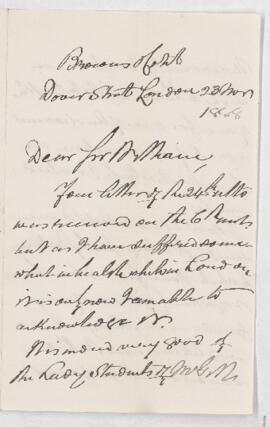 Browns Hotel
Dover Street London 23 Nov
1888
Dear Sir William,
Your letter of the 24th ulto
was received on the 6th inst
but as I have suffered some
what in health while in London
it is only now I am able to
acknowledge it.
It is most very good of
the Lady Students of McGill